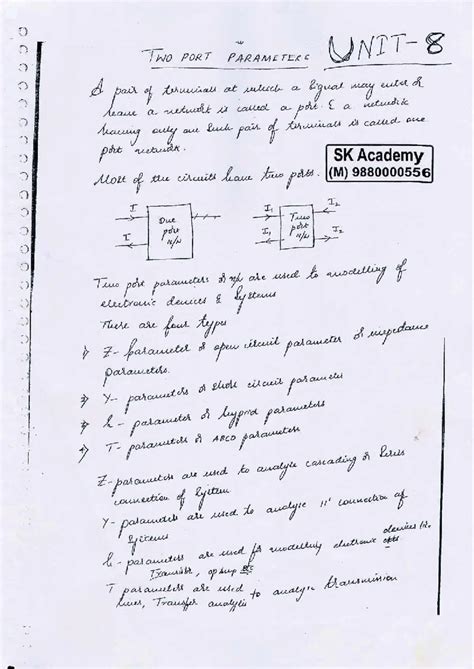 UNIT-8
TWO PORT PARAMETERS
A pair of terminals at which a signal may enter or
leave a network is called a port. & a network
having only one such pair of terminals is called one
port network.
SK Academy
(M) 9880000556
Most of the circuits have two ports.
I
I
One
port
N/W
I1
I1
Two
port
N/W
I2
I2
Two port parameters of N/W are used to modelling of
electronic devices & Systems
There are four types
1) Z- parameter or open circuit parameter or impedance
parameters.
2) Y- parameters or short circuit parameter
3) h- parameter or hybrid parameters
4) T- parameters or ABCD parameters
Z- parameters are used to analyze cascading or Series
connection of System
Y- parameters are used to analyze 11' connection of
Systems
h- parameters are used for modelling electronic devices like
Transistor, op amp etc
T parameters are used to analyze transmission
lines, Transfer analysis